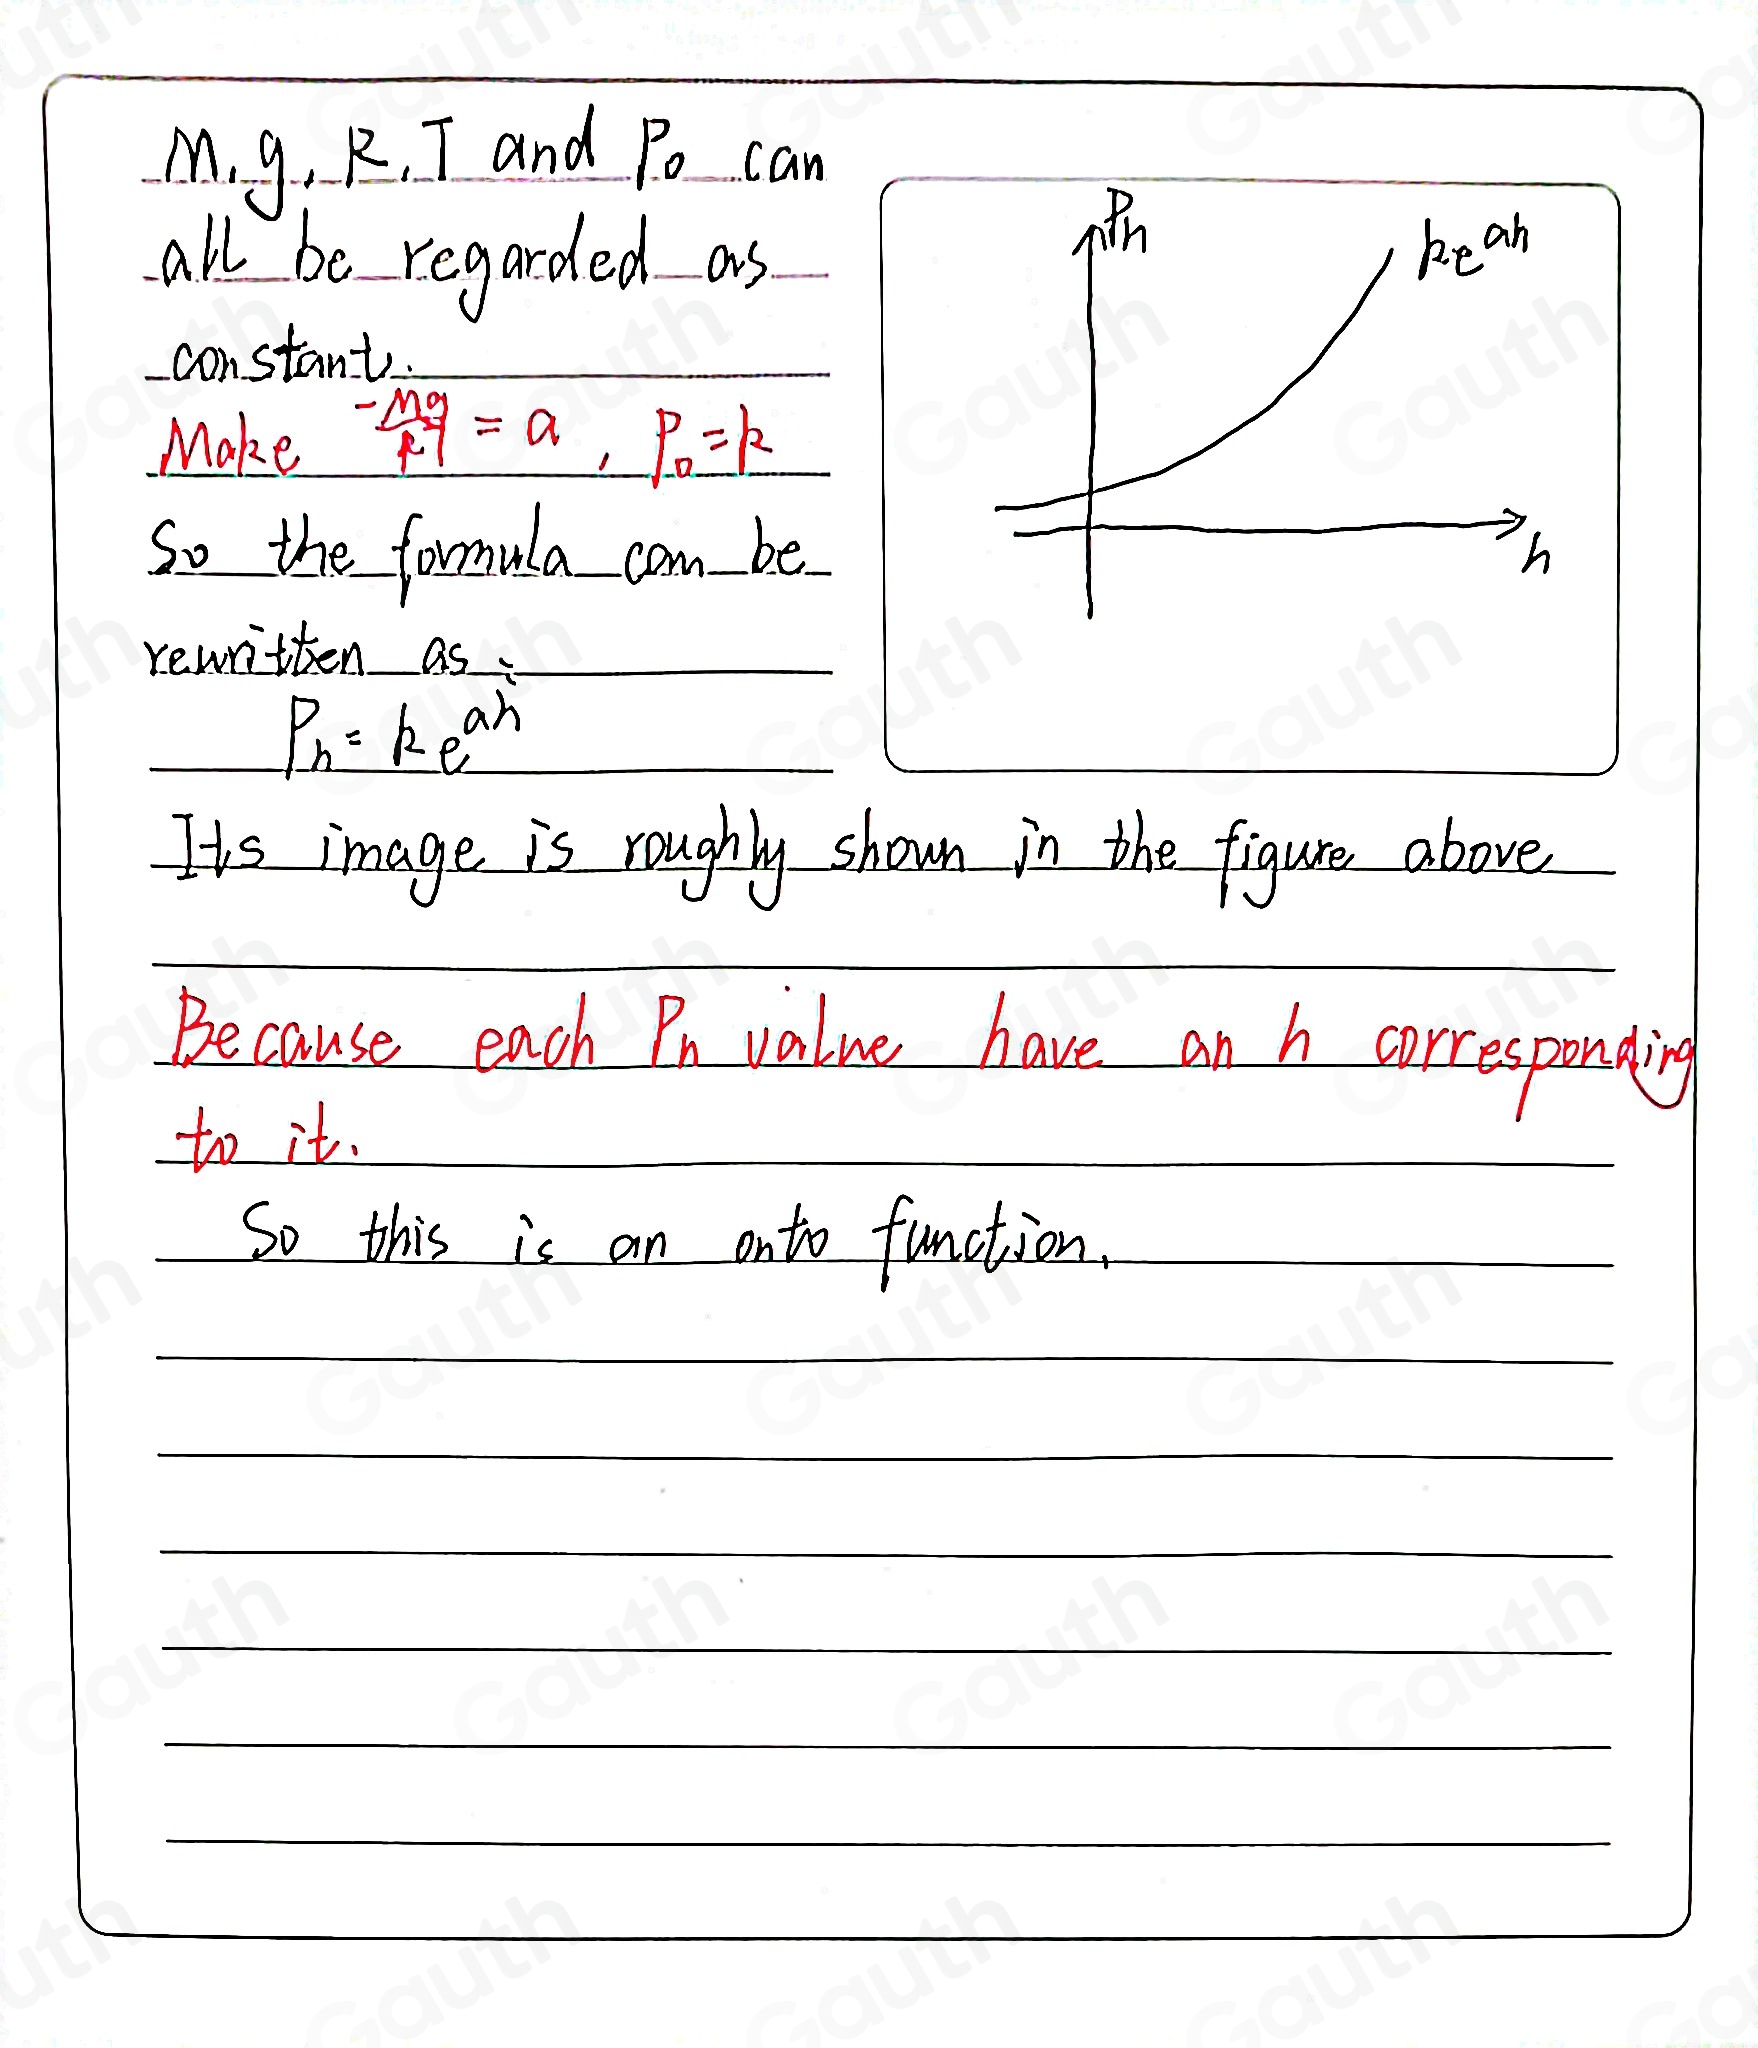 M, g, R, T and P₀ can
all be regarded as
constant.
Make -Mg/RT = a, P₀ = k
So the formula can be
rewritten as:
Pₕ = ke^ah
Its image is roughly shown in the figure above
Because each Pₕ value have an h corresponding
to it.
So this is an onto function.
Pₕ
ke^ah
h
Gauth